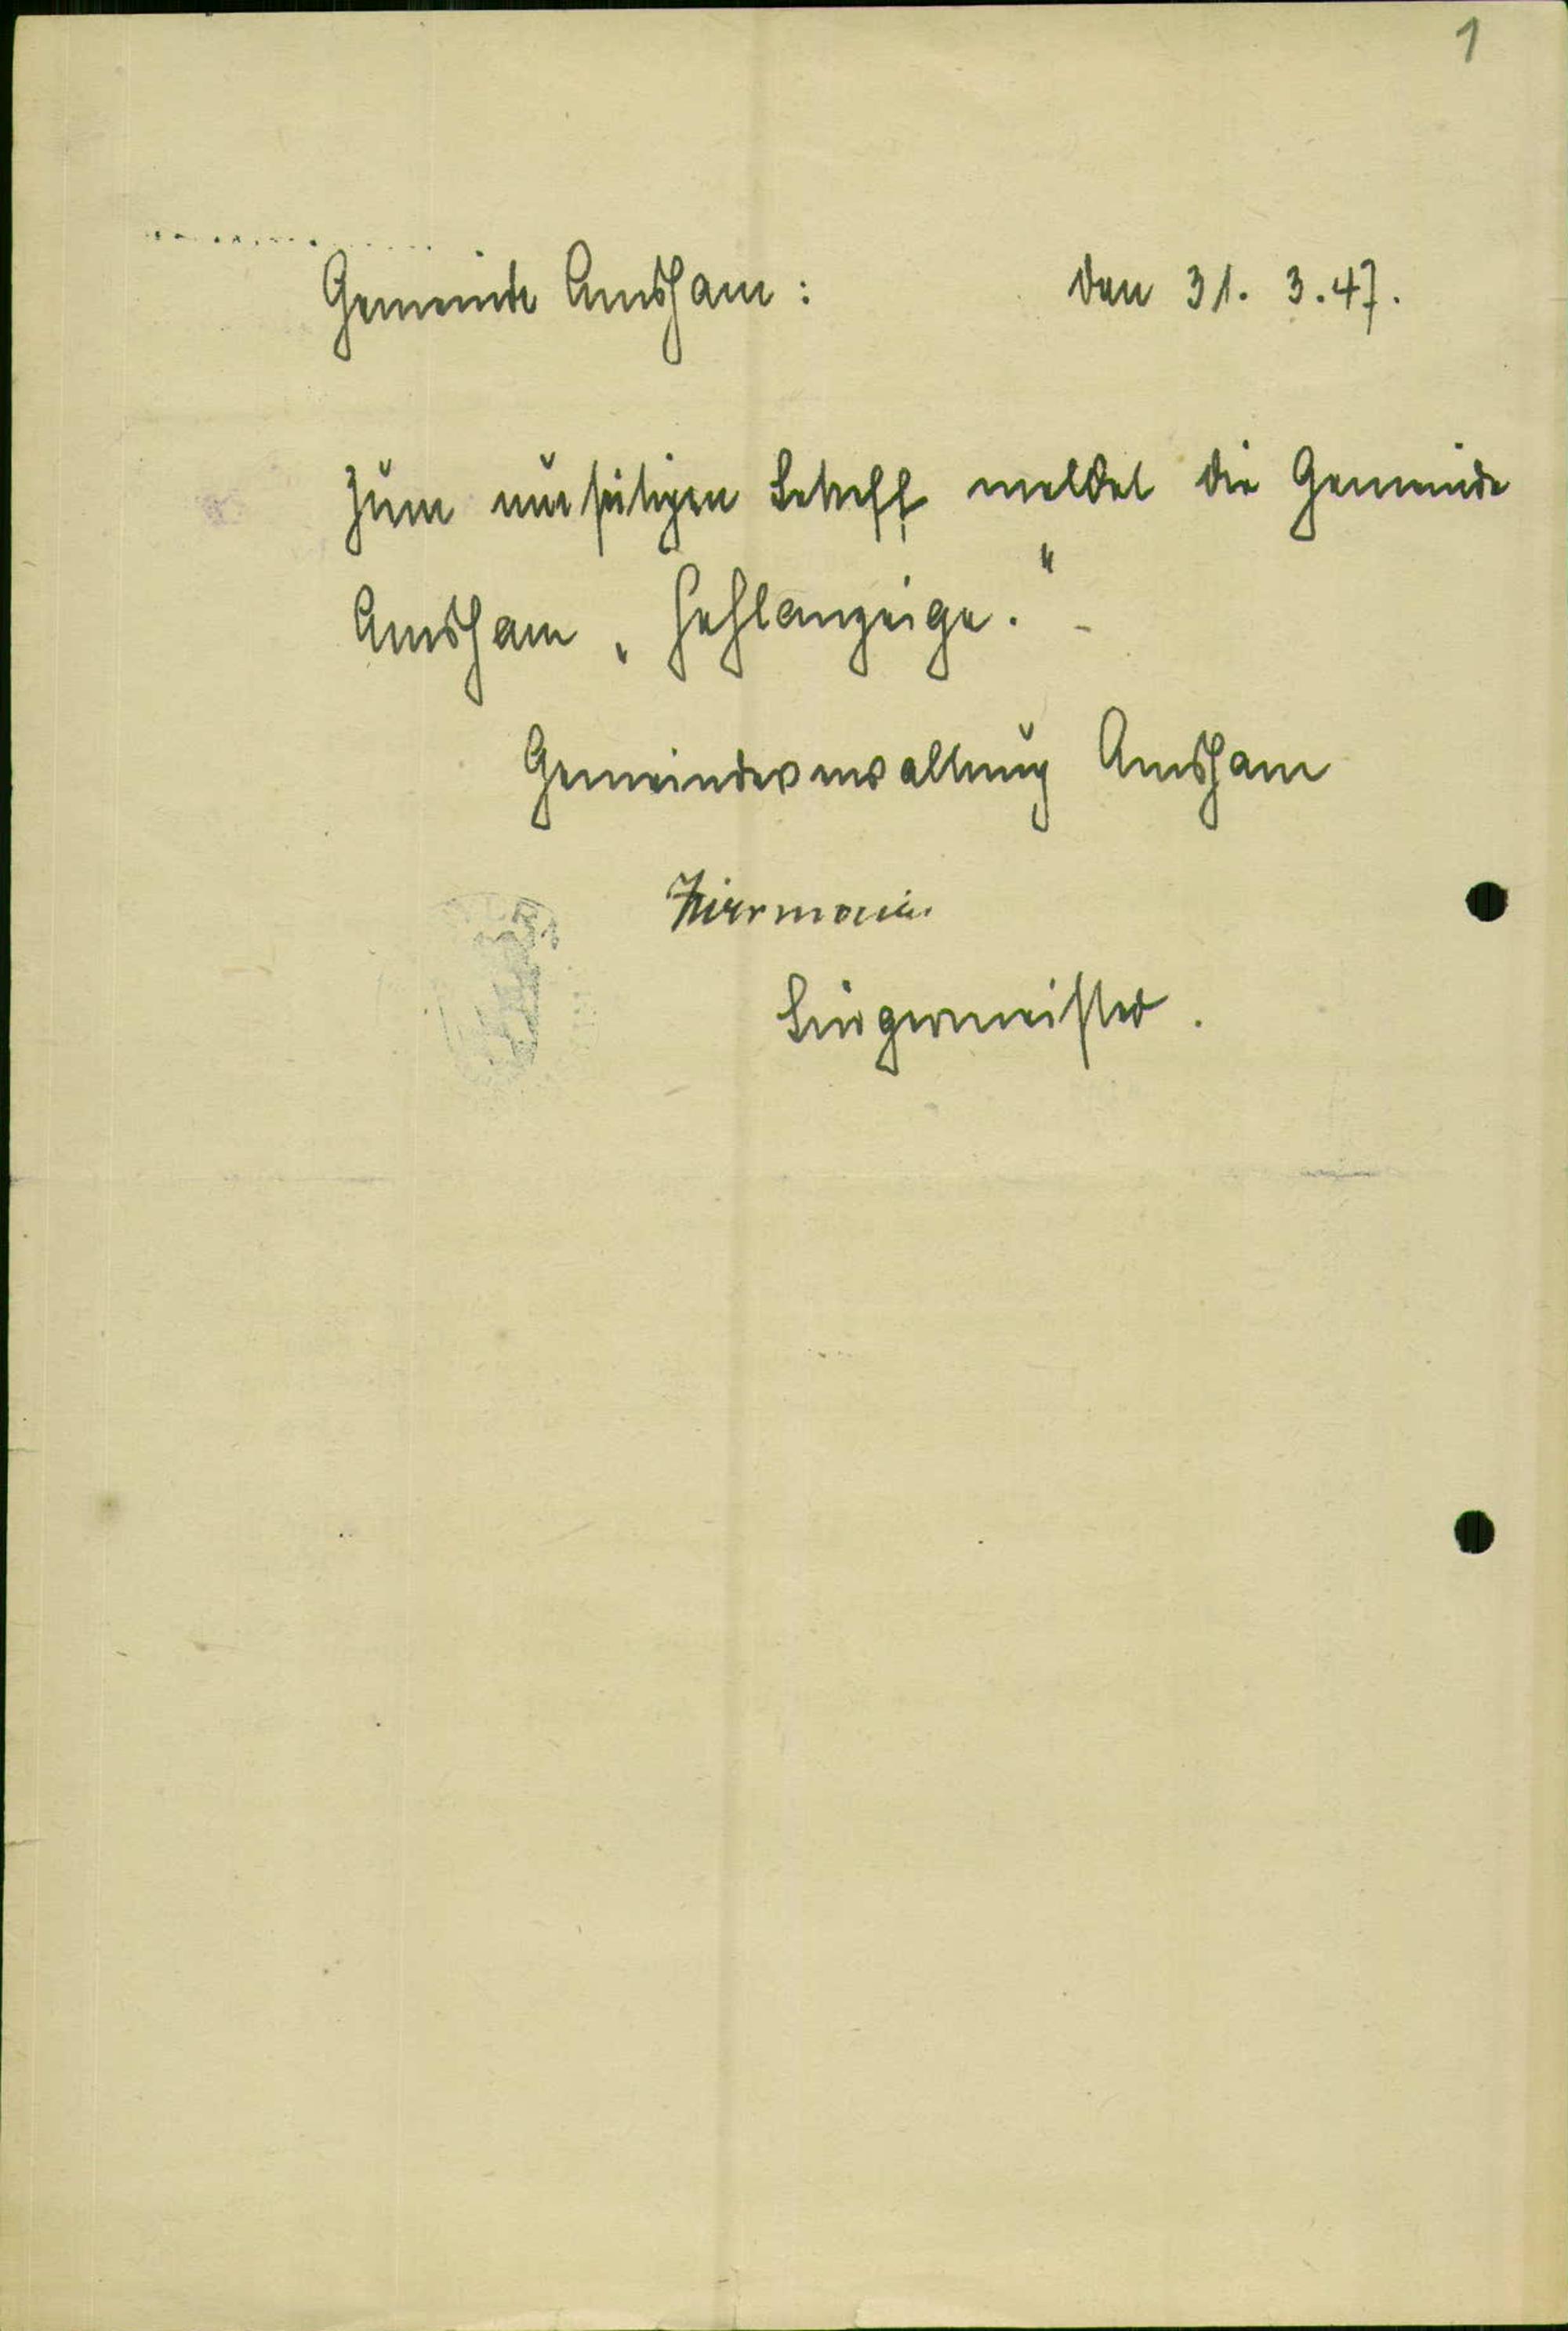 1
Gemeinde Amsham: den 31. 3. 47.
Zum umseitigen Betreff meldet die Gemeinde
Amsham „Fehlanzeige."
Gemeindeverwaltung Amsham
Bürgermeister.